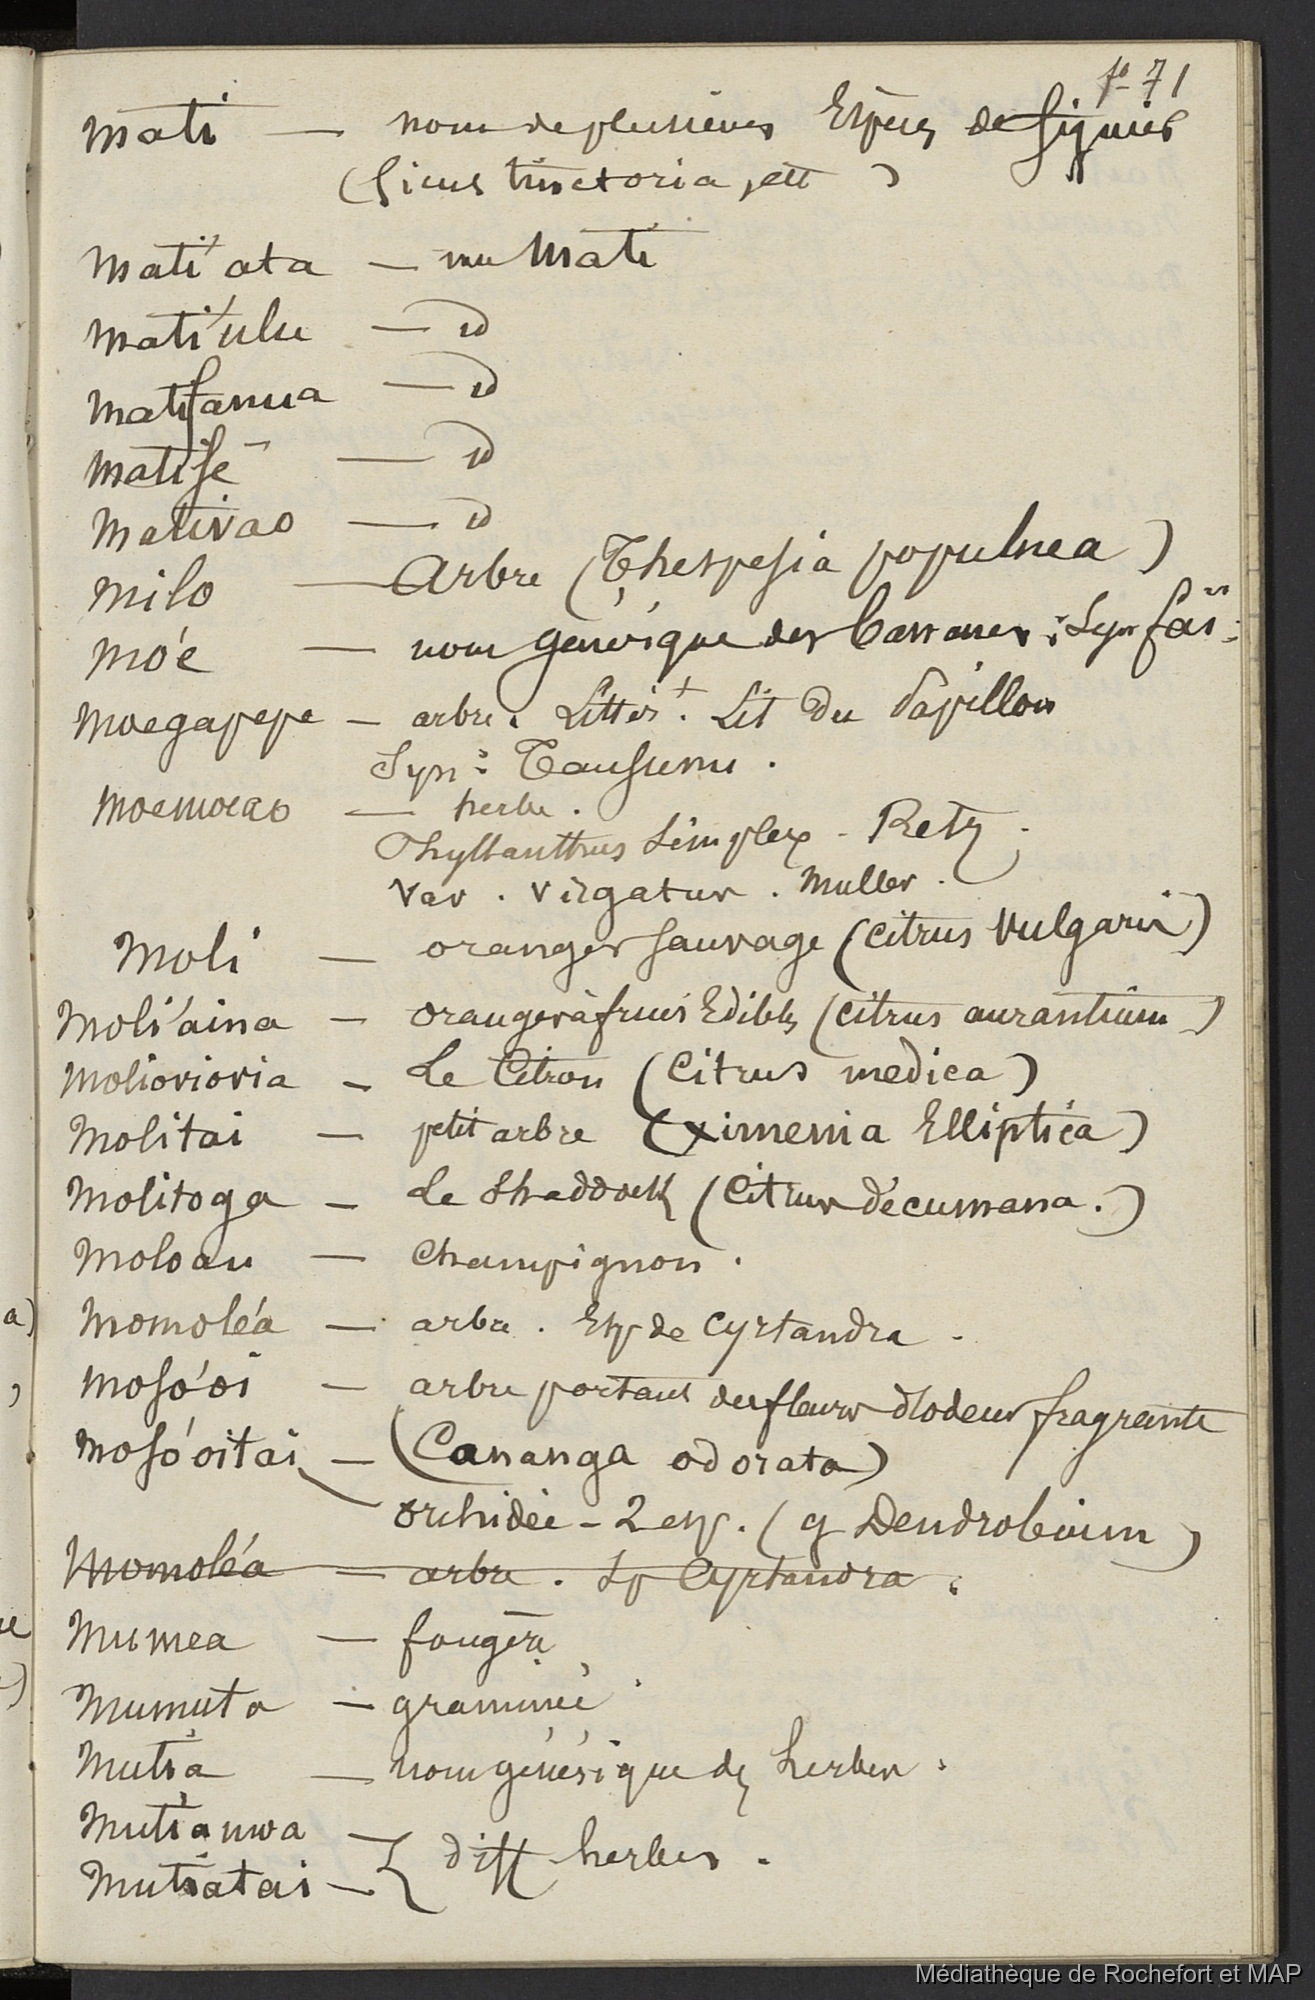 fo 71
Mati — nom de plusieurs Espèces de figuier
(ficus tinctoria, ett )
Mati'ata — un Mati
Mati'ulu — id
Matifanua — id
Matifē — id
Mativao — id
Milo — Arbre (Thespesia populnea)
Mo'e — nom générique des Bananes : Syn faï :
Moegapepe — arbre. Littért. Lit du Papillon
Syn : Taufunu .
Moemoeao — herbe .
Phyllanthus Simplex - Retz .
Var . Virgatus . Muller .
Moli — oranger sauvage (citrus Vulgaris)
Moli'aina — oranger à fruits Edibles (citrus aurantium)
Molioviovia — Le Citron (Citrus medica)
Molitai — petit arbre (Ximenia Elliptica)
Molitoga — Le Shaddock (Citrus décumana.)
Moloau — Champignon .
Momoléa — arbre . Esp de Cyrtandra .
Moso'oi — arbre portant des fleurs d'odeur fragrante
Moso'oitai — (Cananga odorata)
orchidée - 2 esp. (g Dendrobium)
Momoléa — arbre . Sp Cyrtandra .
Mumea — fougère
Mumuta — graminée
Mutia — nom générique des herbes .
Mutiauva —
Mutiatai — { diff herbes .
a)
,
Médiathèque de Rochefort et MAP